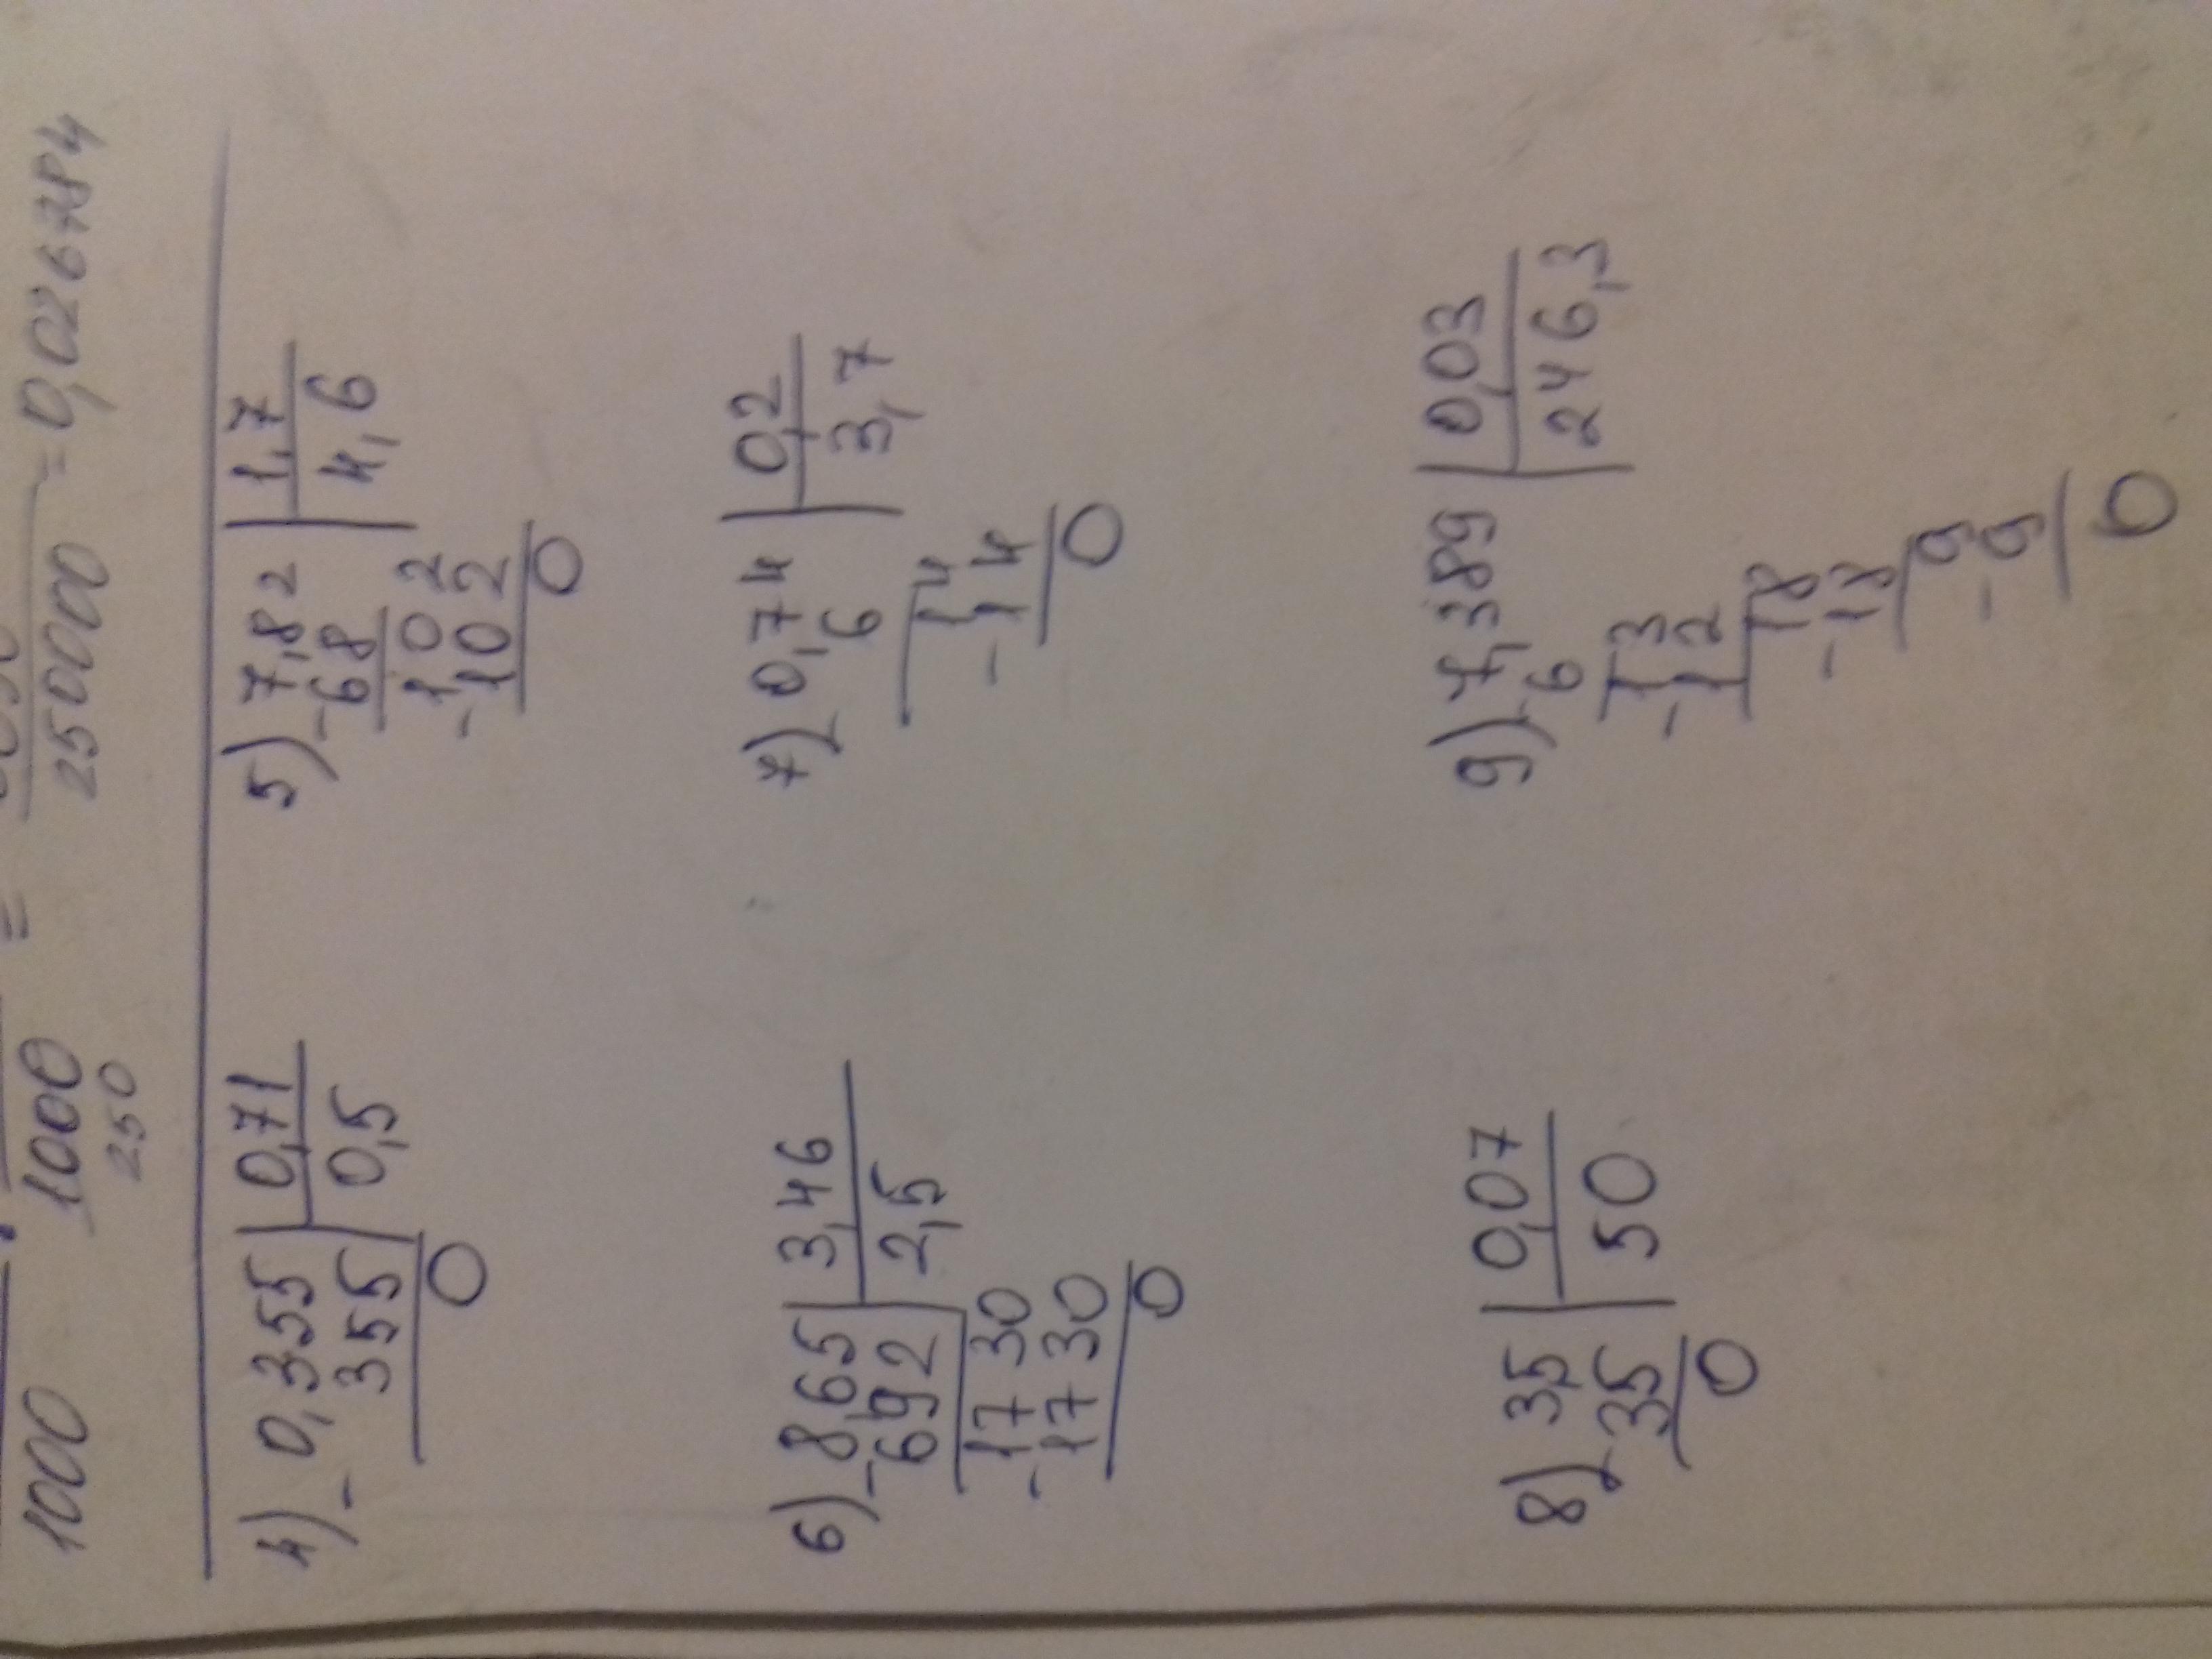 1000 1000 = 250000 = 0,026784
250
4) 0,355 | 0,71 5) 7,82 | 1,7
- 355 | 0,5 - 68 | 4,6
0 102
- 102
0
6) 8,65 | 3,46 7) 0,74 | 0,2
- 692 | 2,5 6 | 3,7
1730 14
- 1730 - 14
0 0
8) 3,5 | 0,07 9) 7,389 | 0,03
- 35 | 50 - 6 | 246,3
0 13
- 12
18
- 18
9
- 9
0